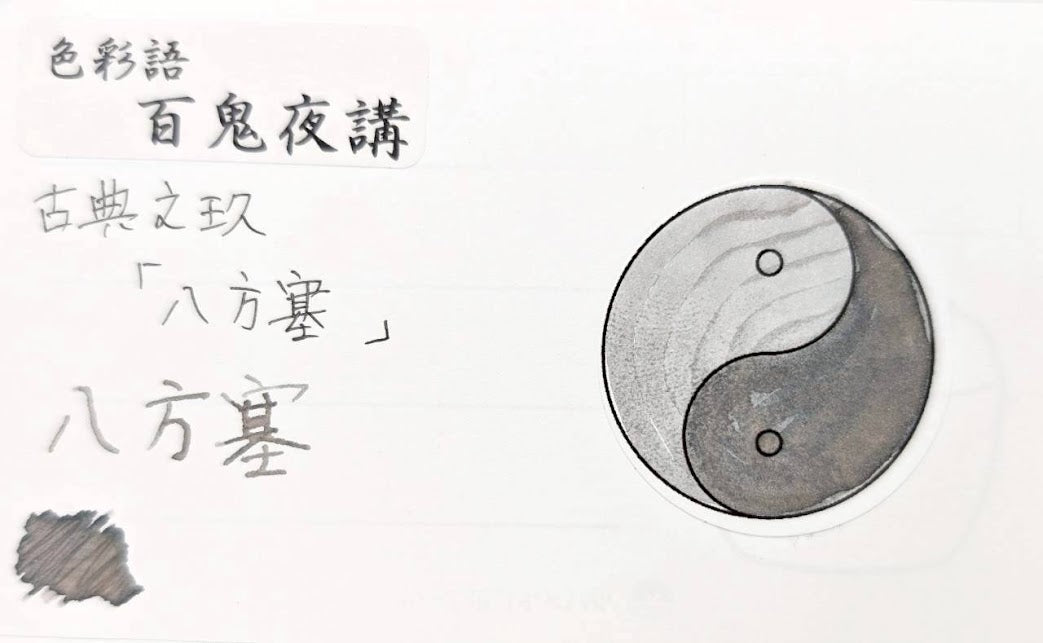 色彩語
百鬼夜講
古典文玖
「八方塞」
八方塞